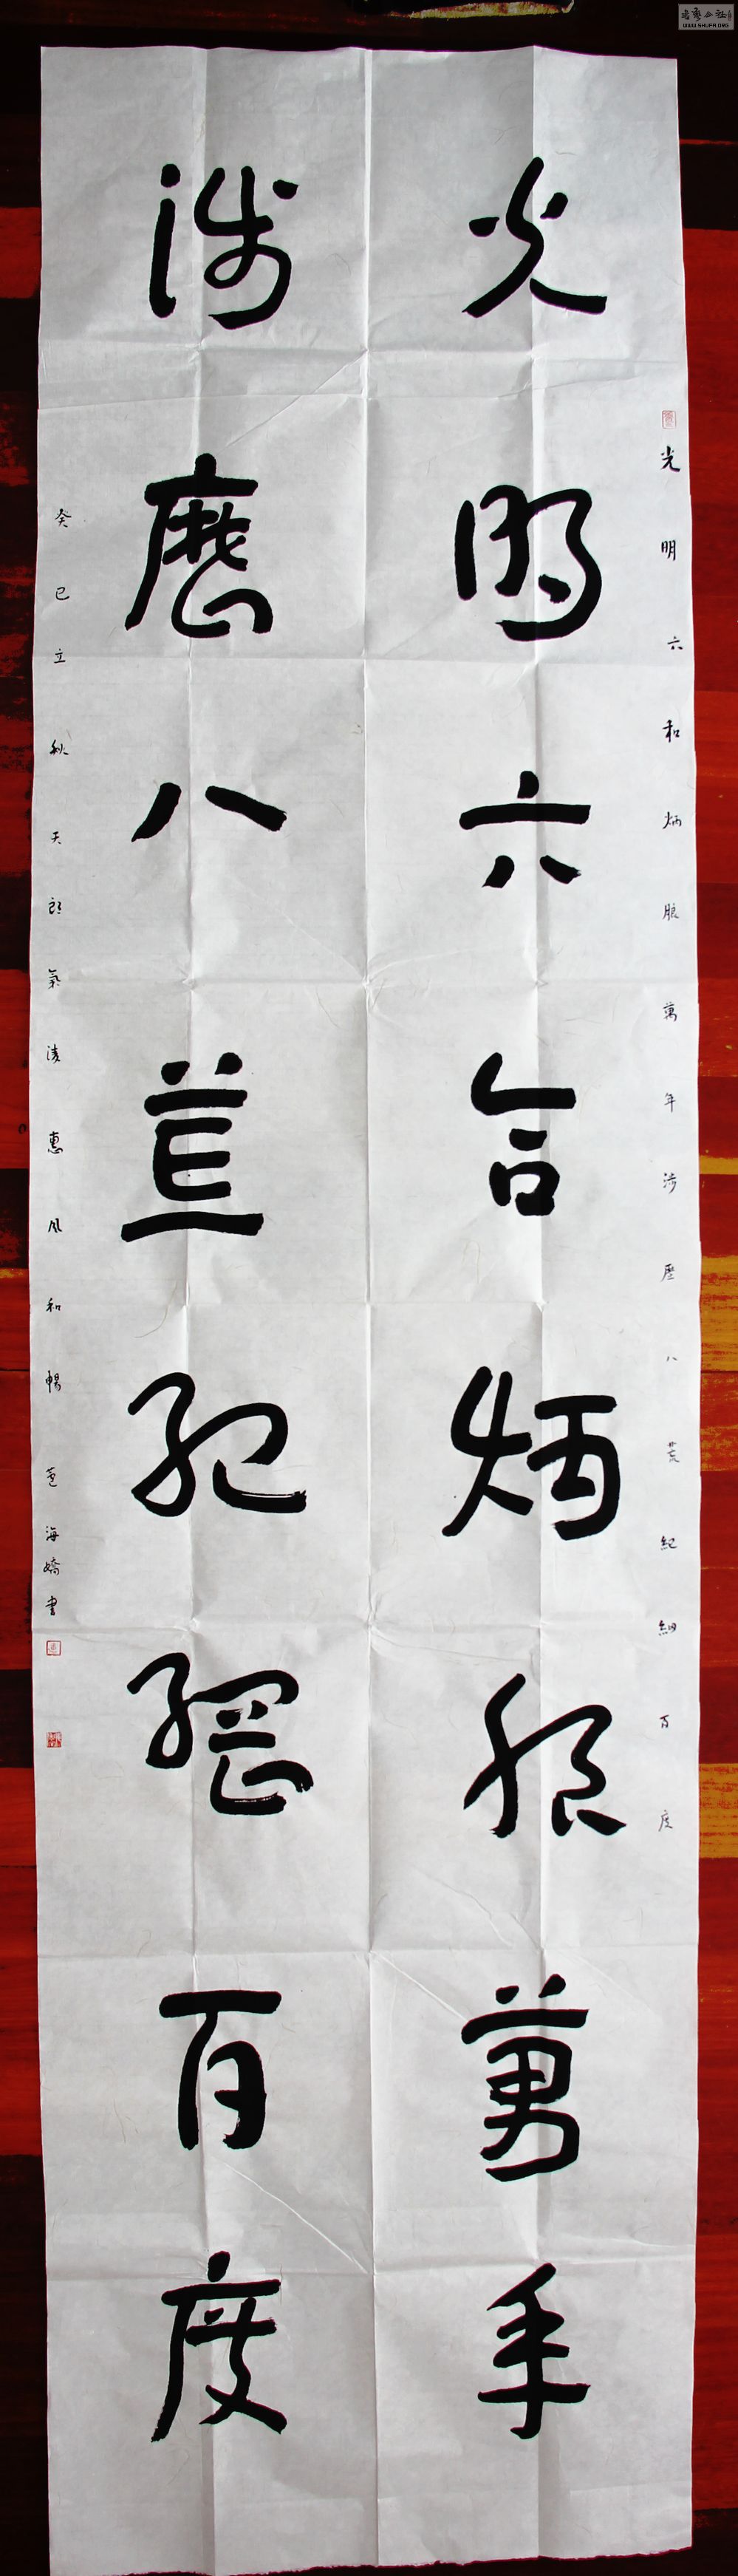 光明六合炳朖萬年
涉歷八荒紀綱百度
光明六和炳朖萬年涉歷八荒紀綱百度
癸巳立秋天朗氣清惠風和暢 海嬌書
WWW.SHUFA.ORG